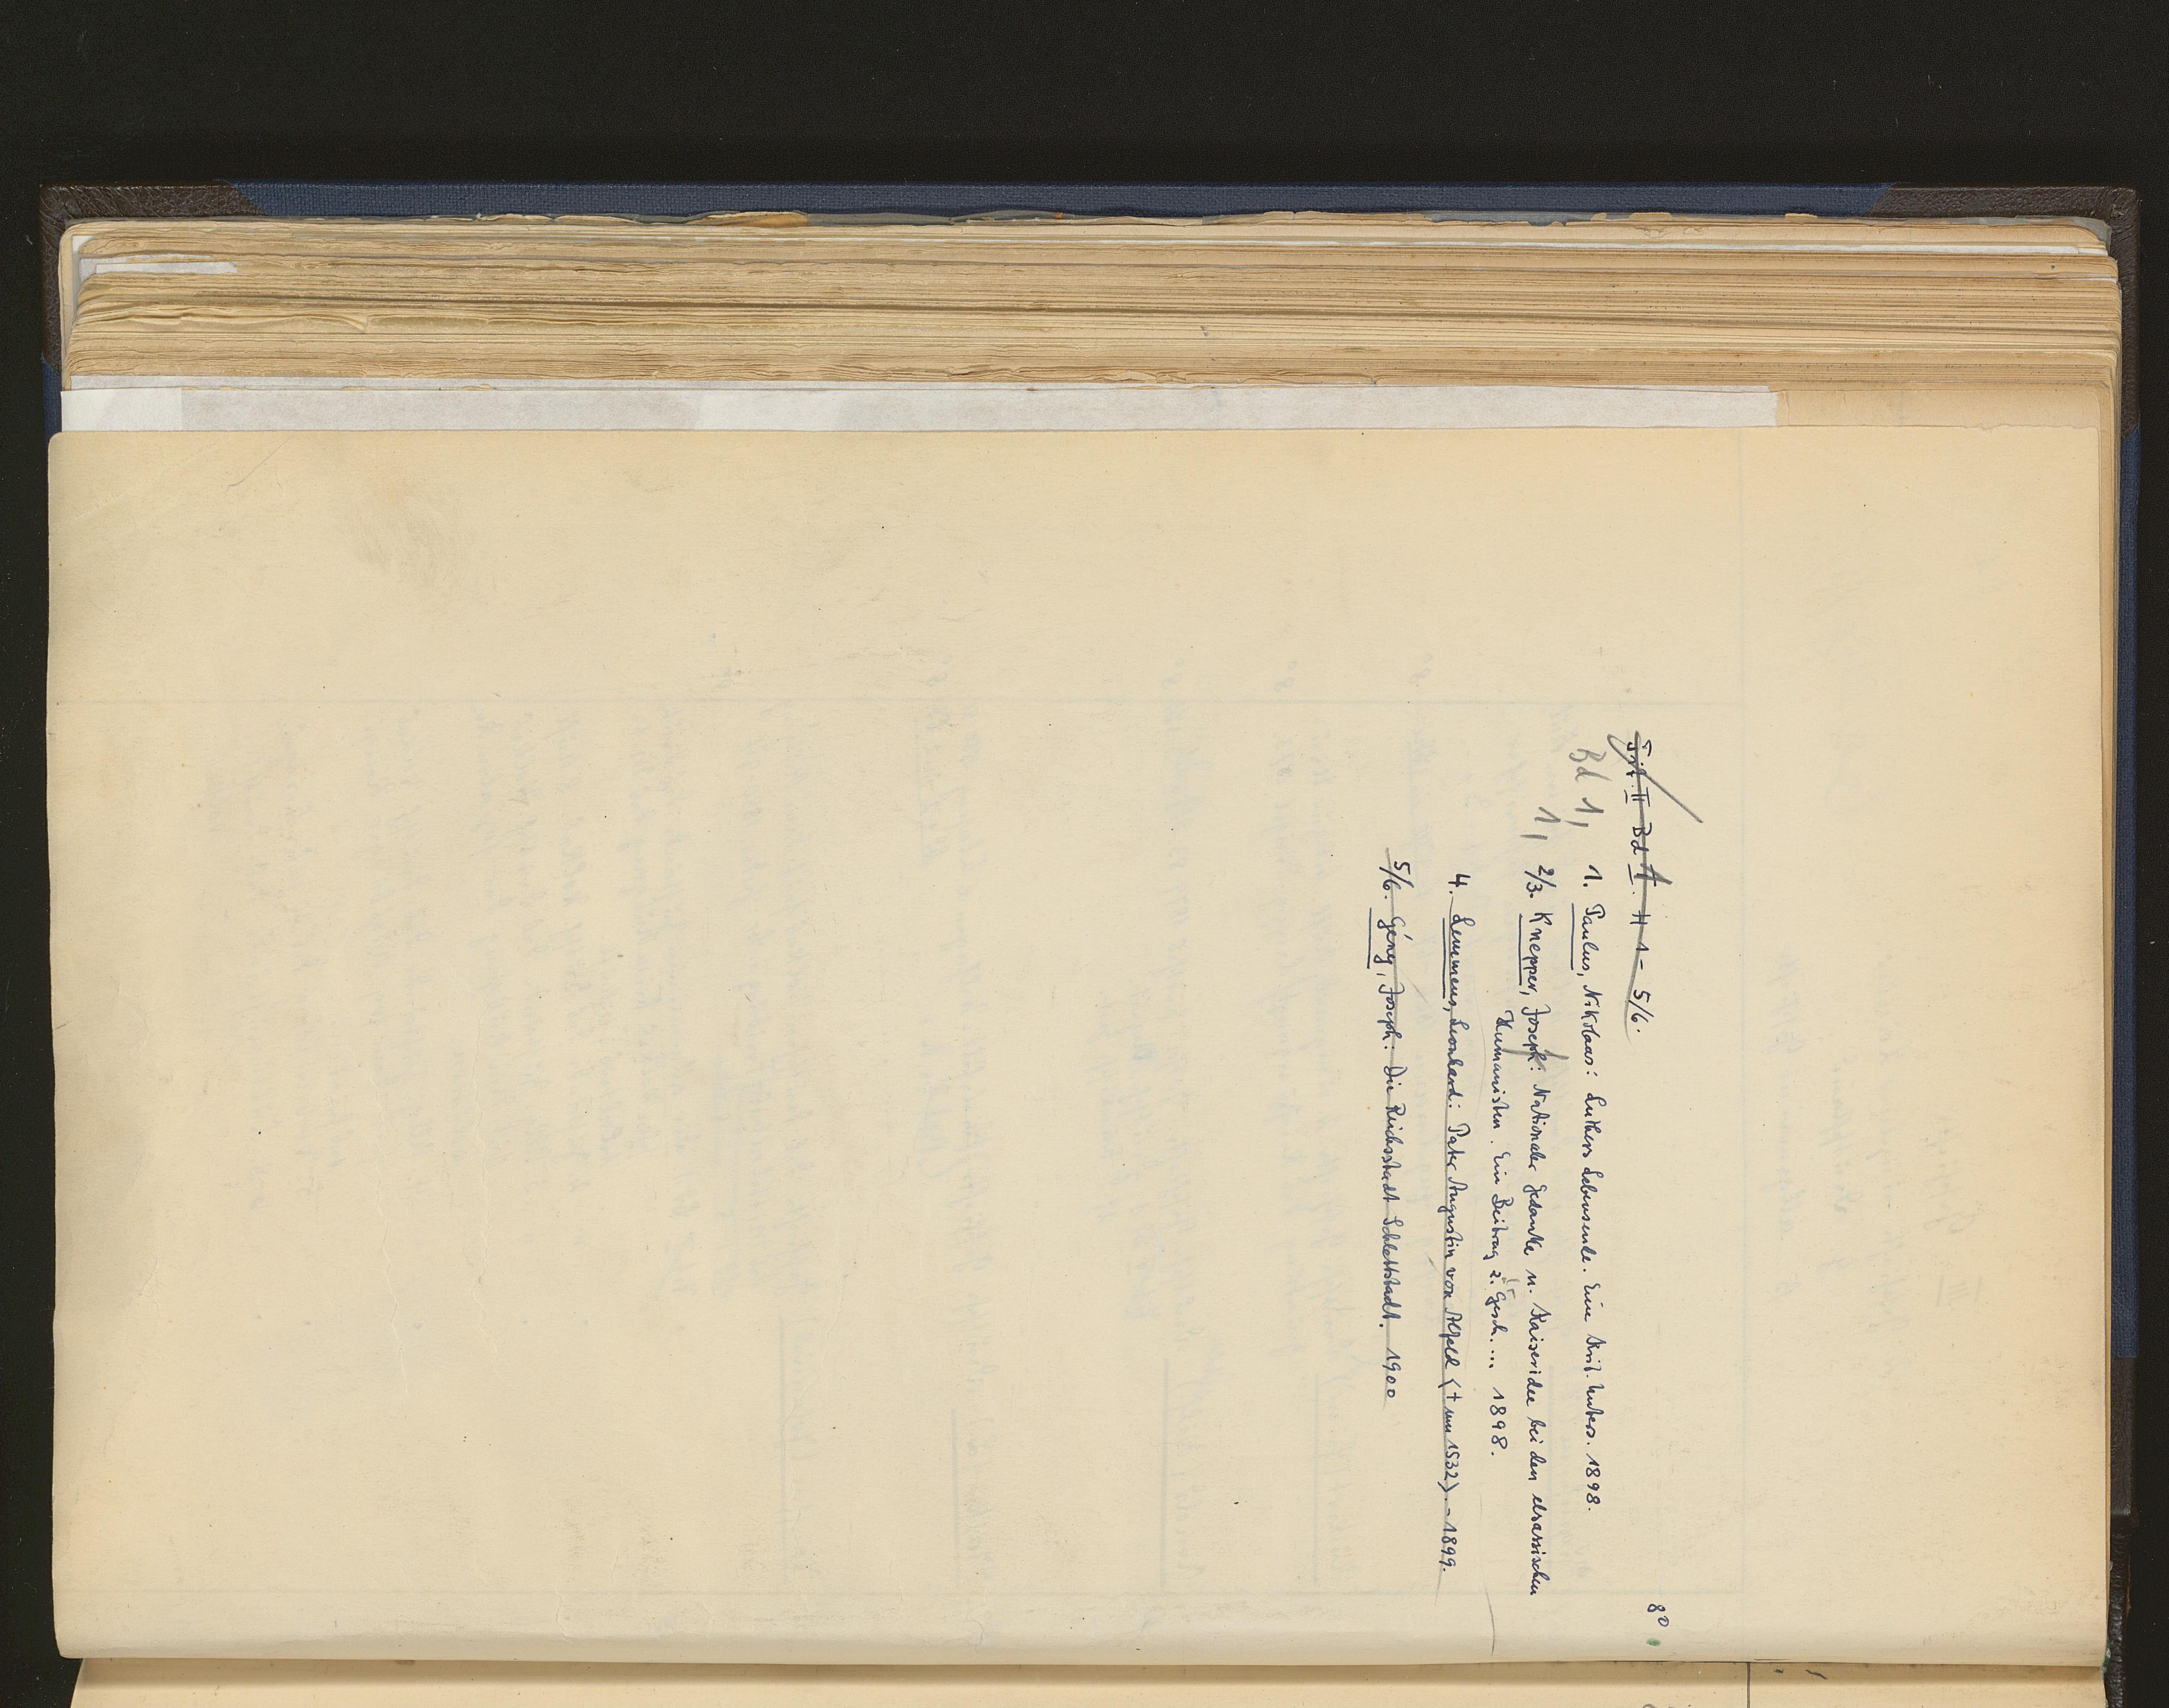 Bd 1. H 1 - 5/6.
8°
Bd 1,
1. Paulus, Nikolaus: Luthers Lebensende. Eine krit. Unters. 1898.
1,
2/3. Knepper, Joseph: Nationaler Gedanke u. Kaiseridee bei den elsässischen
Humanisten. Ein Beitrag z. Gesch.... 1898.
4. Lemmens, Leonhard: Pater Augustin von Alfeld († um 1532). - 1899.
5/6. Gény, Joseph: Die Reichsstadt Schlettstadt. 1900